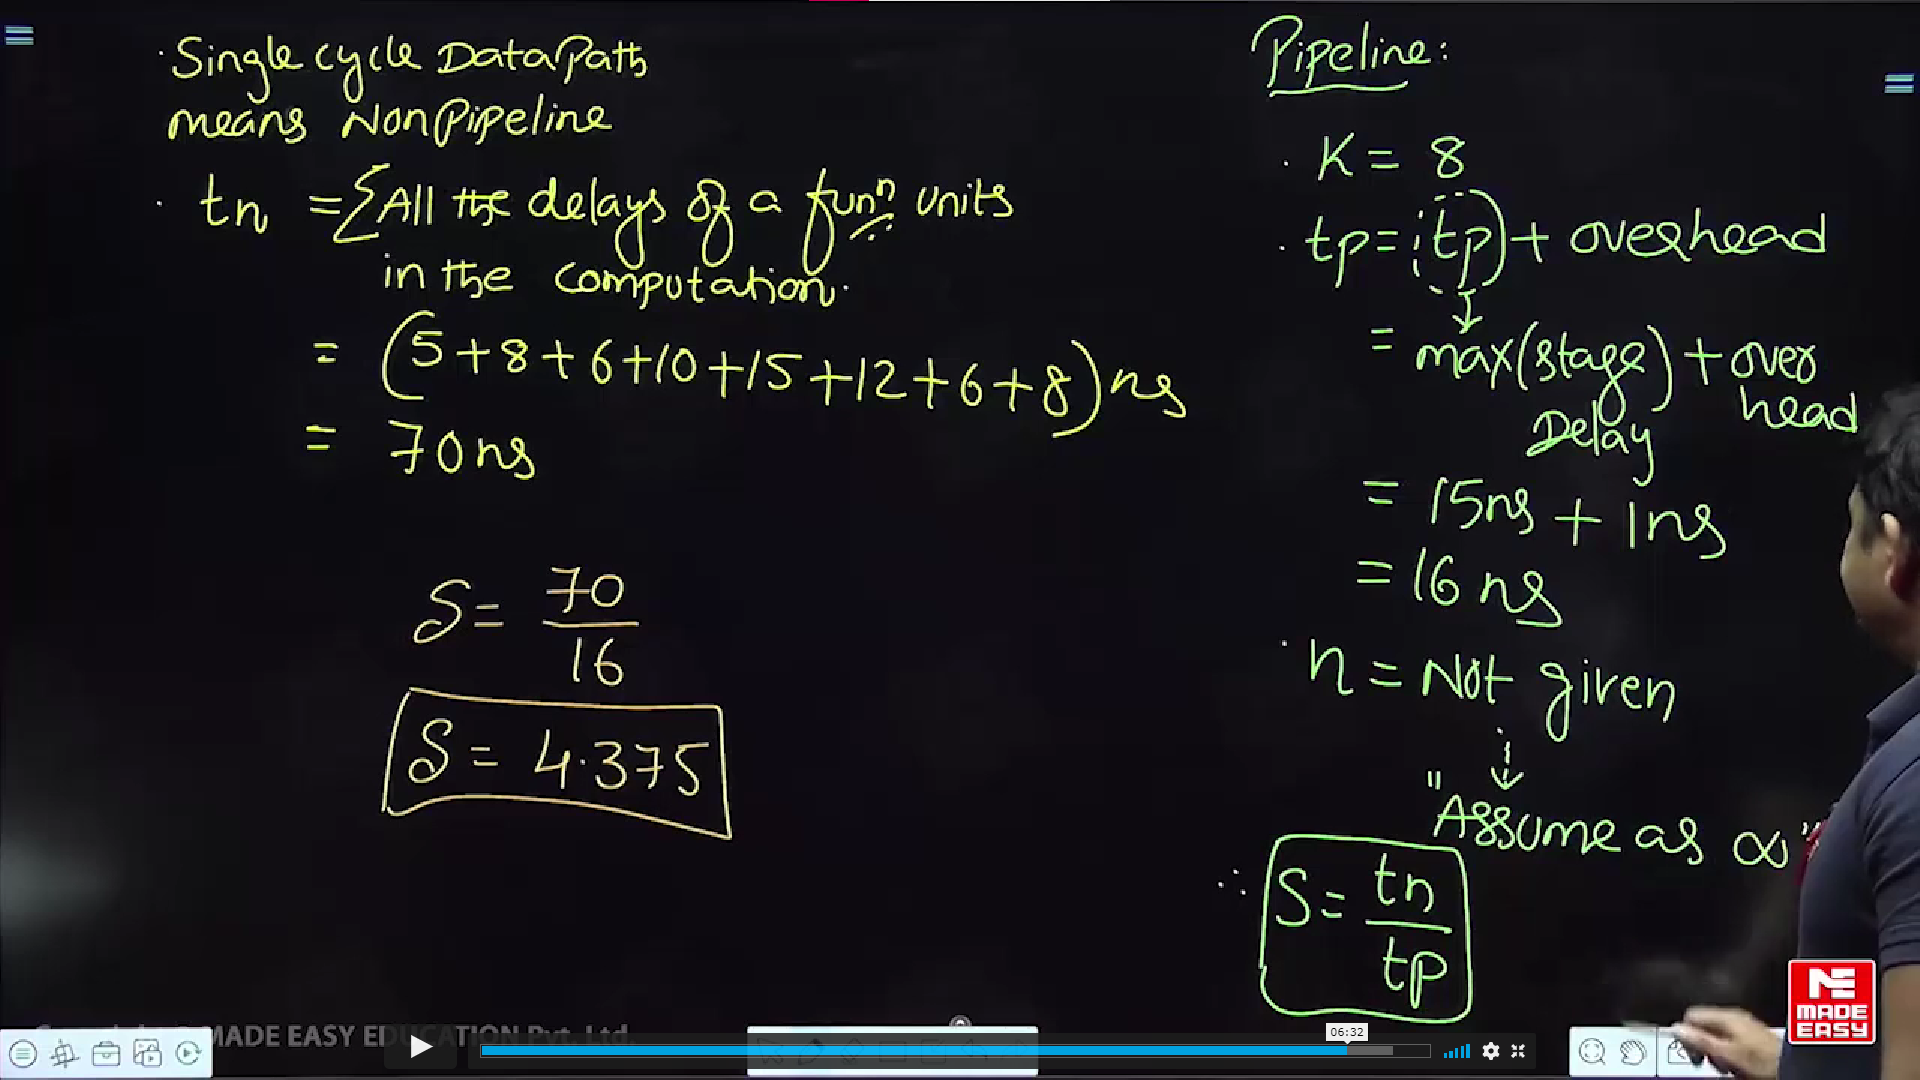 · Single cycle DataPath
means NonPipeline
· tn = Σ All the delays of a funⁿ units
in the computation.
= (5+8+6+10+15+12+6+8) ns
= 70ns
S = 70/16
S = 4.375
Pipeline:
· K = 8
· tp = (tp) + overhead
= max(stage Delay) + over head
= 15ns + 1ns
= 16 ns
· n = Not given
"Assume as ∞"
∴ S = tn/tp
MADE EASY EDUCATION Pvt. Ltd.
06:32
ME
MADE
EASY